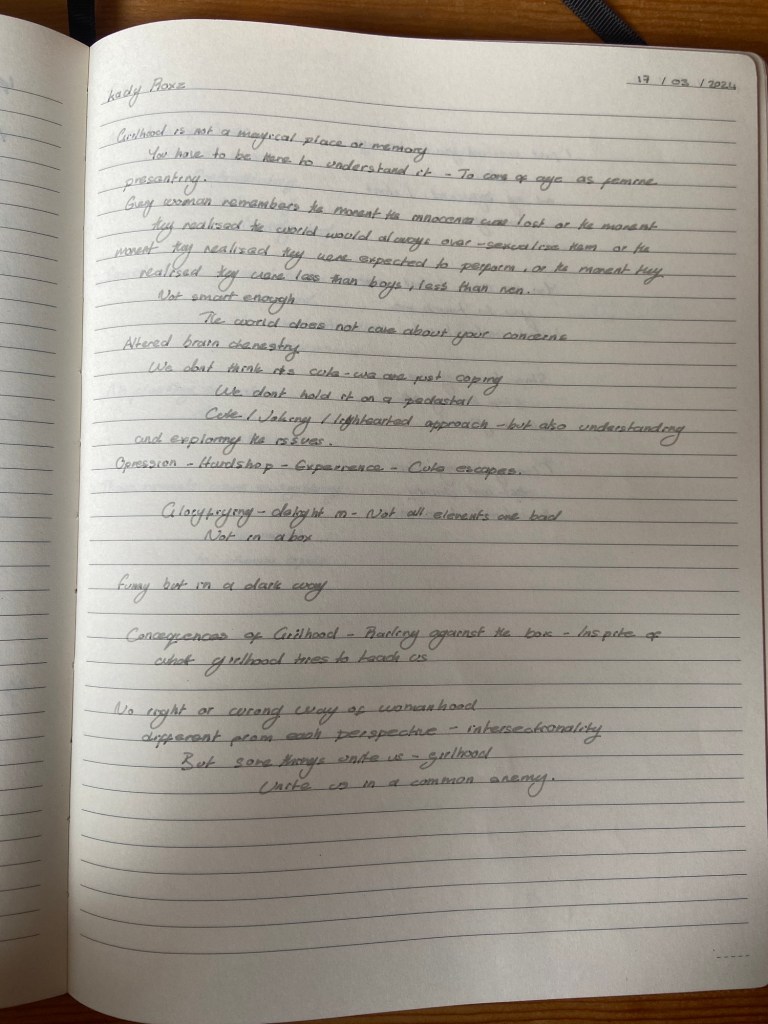 Lady Roxz
17 / 03 / 2024
Girlhood is not a magical place or memory
You have to be here to understand it - To come of age as femme
presenting.
Every woman remembers the moment the innocence was lost or the moment
they realised the world would always over-sexualize them or the
moment they realised they were expected to perform, or the moment they
realised they were less than boys, less than men.
Not smart enough
The world does not care about your concerns
Altered brain chemestry
We dont think its cute - we are just coping
We dont hold it on a pedastal
Cute / Joking / lighthearted approach - but also understanding
and exploring the issues.
Opression - Hardshop - Experience - Cute escapes.
Gloryfying - delight in - Not all elements are bad
Not in a box
Funny but in a dark way
Consequences of Girlhood - against the box - Inspite of
what girlhood tries to teach us
No right or wrong way of womanhood
different from each perspective - intersectionality
But some things unite us - girlhood
Unite us in a common enemy.